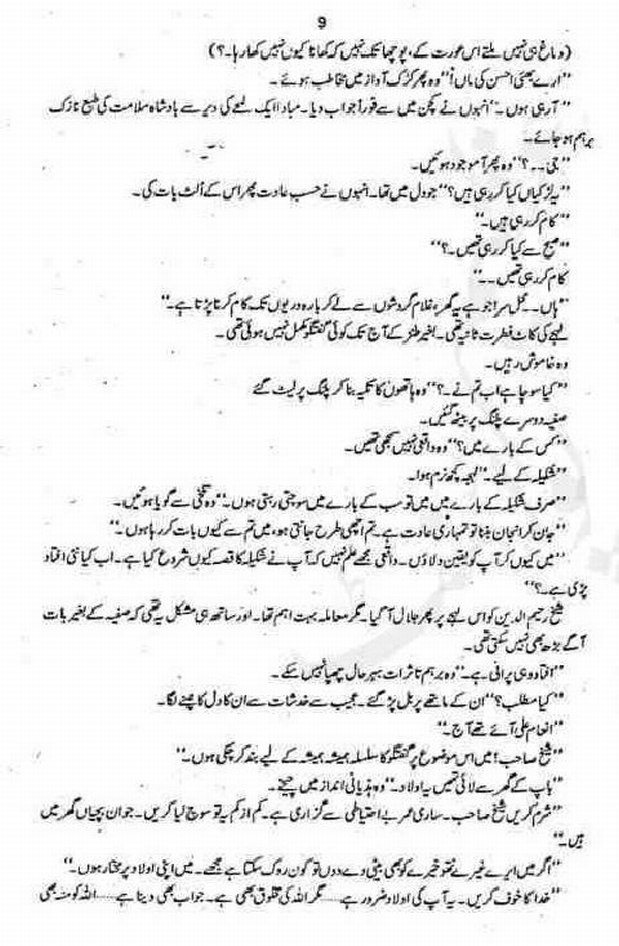 9
(دماغ ہی نہیں ملتے اس عورت کے، پوچھا تک نہیں کہ کھانا کیوں نہیں کھا رہا۔؟)
"ارے بھئی احسن کی ماں!" وہ پھر کڑک آواز میں مخاطب ہوئے۔
"آرہی ہوں۔" انہوں نے کچن میں سے فوراً جواب دیا۔ مبادا ایک لمحے کی دیر سے بادشاہ سلامت کی طبع نازک
برہم ہو جائے۔
"جی۔۔؟" وہ پھر آموجود ہوئیں۔
"یہ لڑکیاں کیا کر رہی ہیں؟" جو دل میں تھا۔ انہوں نے حسب عادت پھر اس کے اُلٹ بات کی۔
"کام کر رہی ہیں۔"
"صبح سے کیا کر رہی تھیں۔؟"
کام کر رہی تھیں۔۔"
"ہاں۔۔ محل سرا جو ہے یہ گھر، غلام گردشوں سے لے کر بارہ دریوں تک کام کرنا پڑتا ہے۔"
لہجے کی کاٹ فطرت ثانیہ تھی۔ بغیر طنز کے آج تک کوئی گفتگو مکمل نہیں ہوئی تھی۔
وہ خاموش رہیں۔
"کیا سوچا ہے اب تم نے۔؟" وہ ہاتھوں کا تکیہ بنا کر پلنگ پر لیٹ گئے
صفیہ دوسرے پلنگ پر بیٹھ گئیں۔
"کس کے بارے میں؟" وہ واقعی نہیں سمجھی تھیں۔
"شکیلہ کے لیے۔" لہجہ کچھ نرم ہوا۔
"صرف شکیلہ کے بارے میں میں تو سب کے بارے میں سوچتی رہتی ہوں۔" وہ تلخی سے گویا ہوئیں۔
"جان کر انجان بننا تو تمہاری عادت ہے۔ تم اچھی طرح جانتی ہو، میں تم سے کیوں بات کر رہا ہوں۔"
"میں کیوں کر آپ کو یقین دلاؤں۔ واقعی مجھے علم نہیں کہ آپ نے شکیلہ کا قصہ کیوں شروع کیا ہے۔ اب کیا نئی افتاد
پڑی ہے۔؟"
شیخ رحیم الدین کو اس لہجے پر پھر جلال آگیا۔ مگر معاملہ بہت اہم تھا۔ اور ساتھ ہی مشکل یہ تھی کہ صفیہ کے بغیر بات
آگے بڑھ بھی نہیں سکتی تھی۔
"افتاد وہی پرانی ہے۔" وہ برہم تاثرات بہر حال چھپا نہیں سکے۔
"کیا مطلب؟" ان کے ماتھے پر بل پڑ گئے۔ عجیب سے خدشات سے ان کا دل کانپنے لگا۔
"انعام علی آئے تھے آج۔"
"شیخ صاحب! میں اس موضوع پر گفتگو کا سلسلہ ہمیشہ ہمیشہ کے لیے بند کر چکی ہوں۔"
"باپ کے گھر سے لائی تھیں یہ اولاد۔" وہ ہذیانی انداز میں چیخے۔
"شرم کریں شیخ صاحب۔ ساری عمر بے احتیاطی سے گزاری ہے۔ کم از کم یہ تو سوچ لیا کریں۔ جوان بچیاں گھر میں
ہیں۔"
"اگر میں ایرے غیرے نتھو خیرے کو بھی بیٹی دے دوں تو کون روک سکتا ہے مجھے۔ میں اپنی اولاد پر مختار ہوں۔"
"خدا کا خوف کریں۔ یہ آپ کی اولاد ضرور ہے......مگر اللہ کی مخلوق بھی ہے۔ جواب بھی دینا ہے......اللہ کو منہ بھی